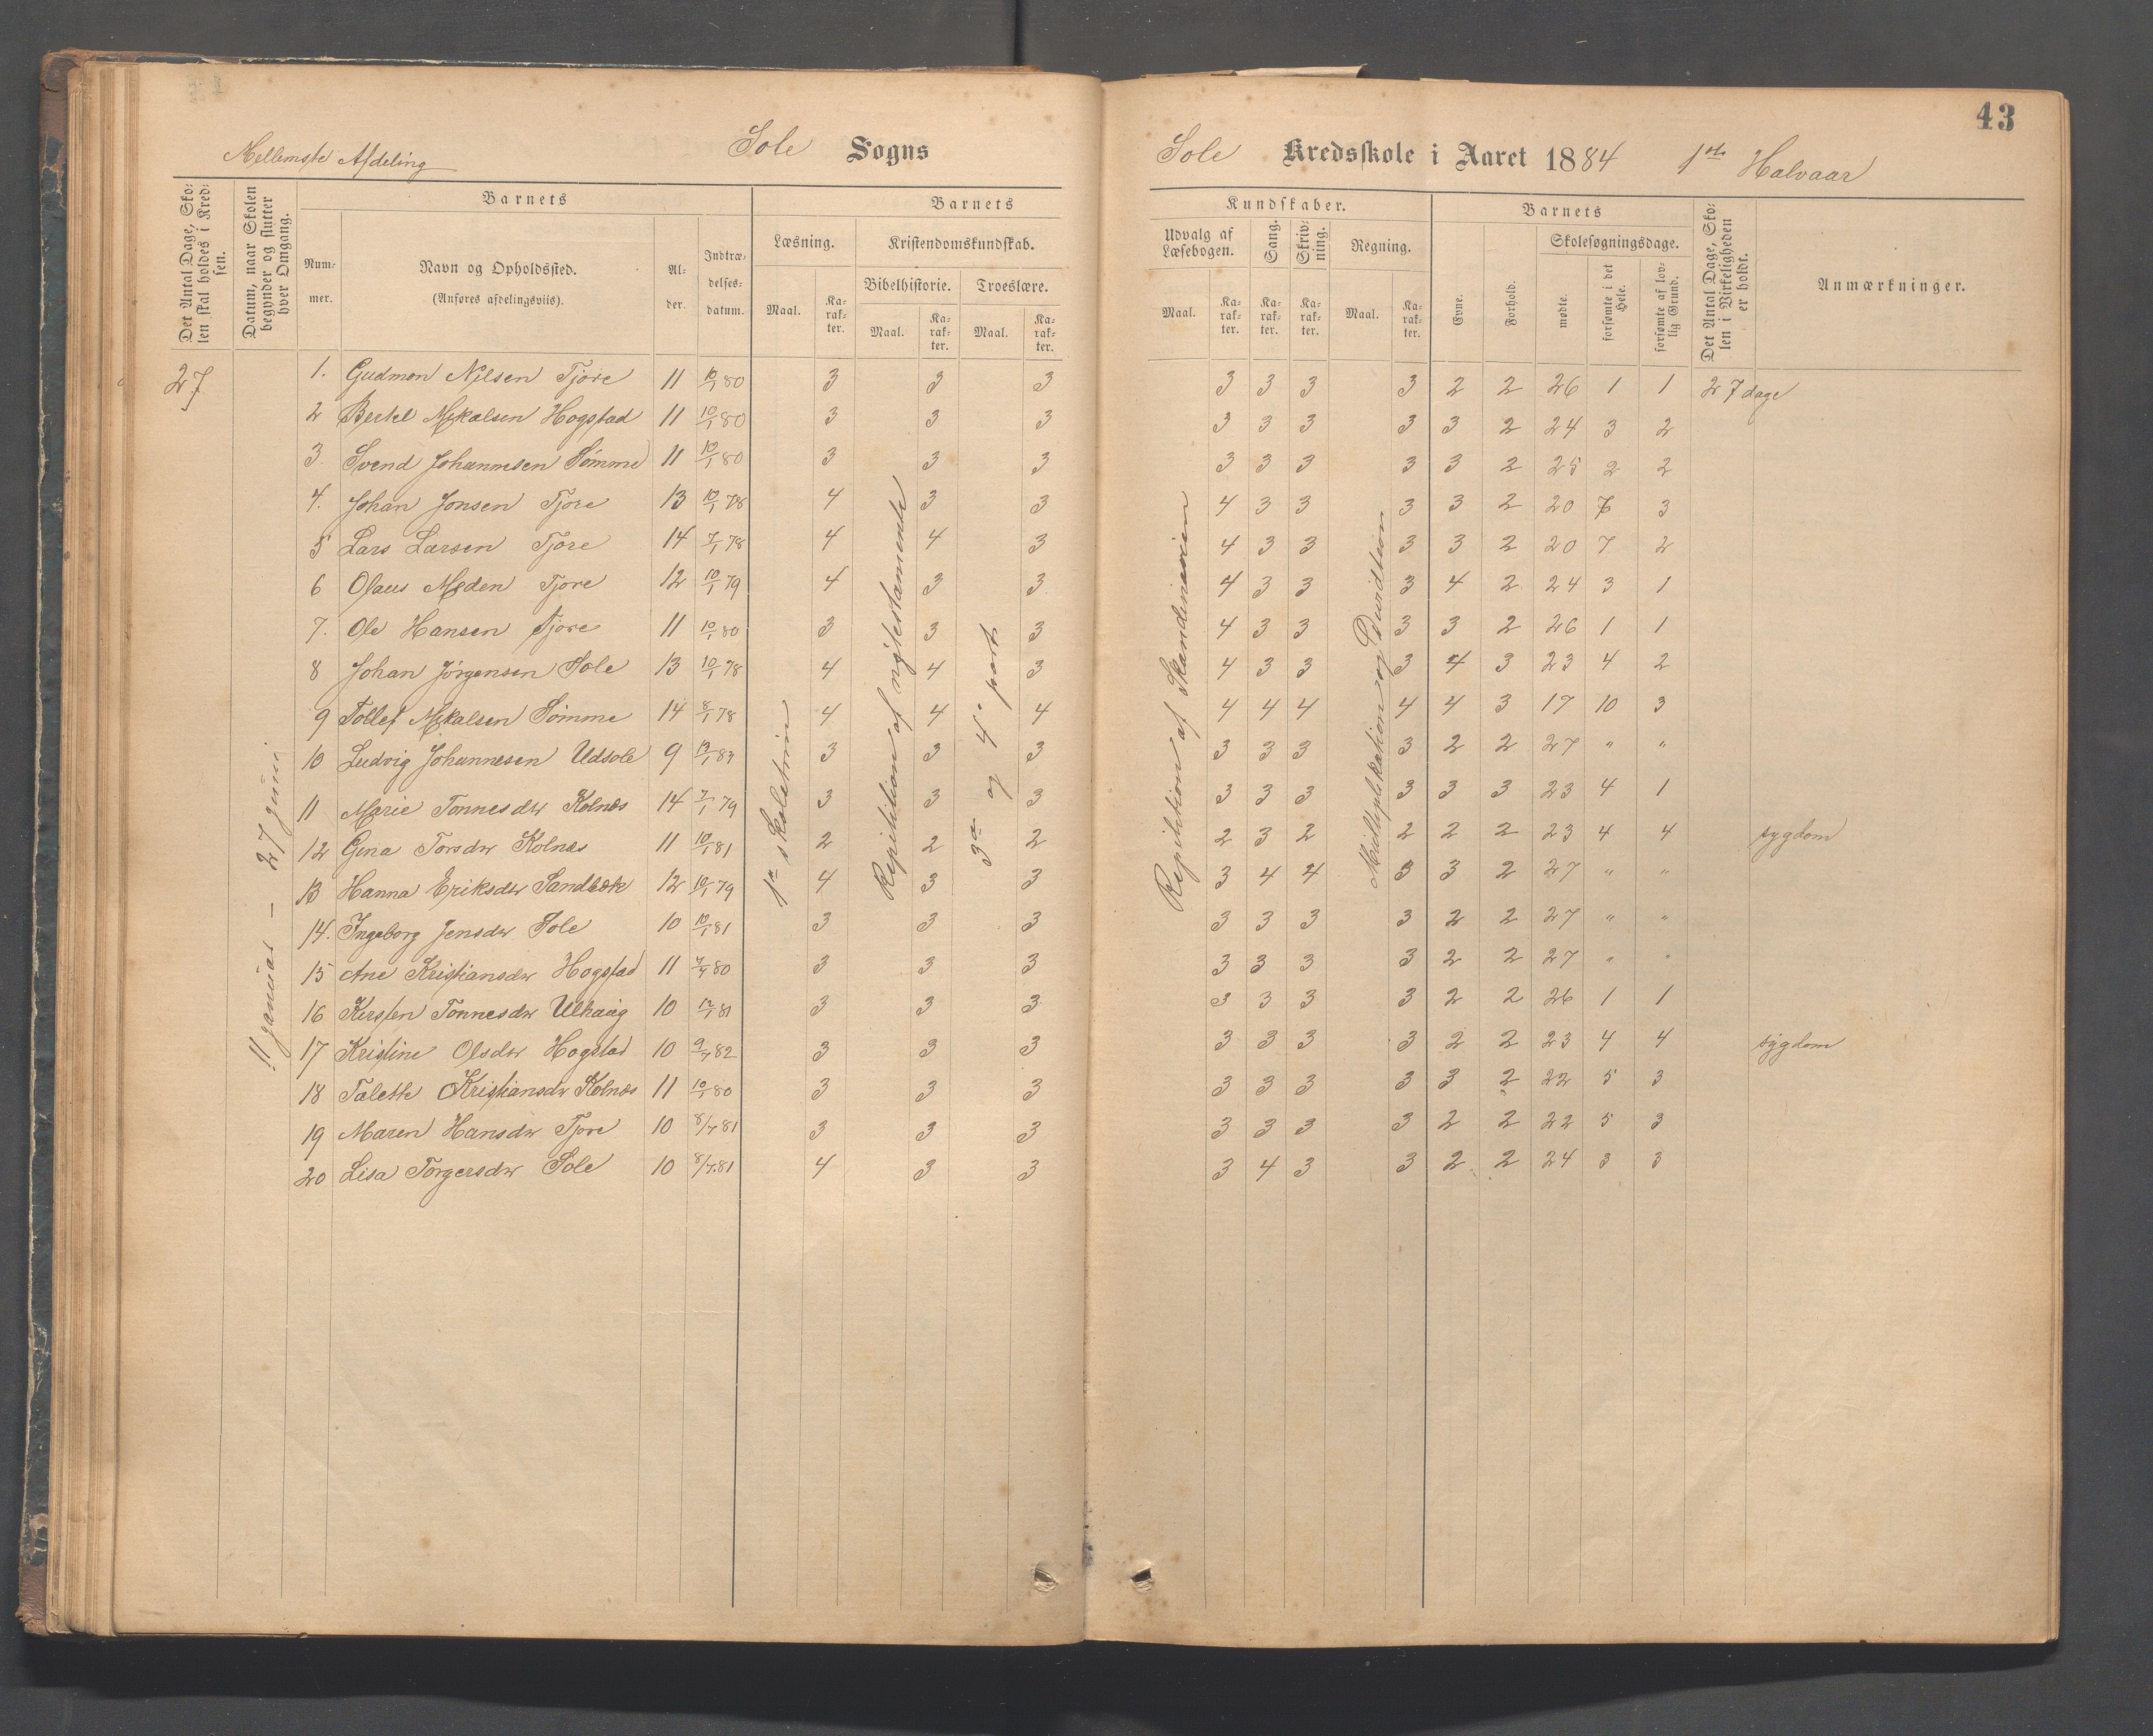 43
Mellemste Afdeling
Sole Sogns
Sole Kredsskole i Aaret 1884 1ste Halvaar
Det Antal Dage, Skolen skal holdes i Kredsen.
Datum, naar Skolen begynder og slutter hver Omgang.
Barnets
Nummer.
Navn og Opholdssted.
(Anføres afdelingsviis).
Alder.
Indtrædelsesdatum.
Barnets
Læsning.
Maal. Karakter.
Kristendomskundskab.
Bibelhistorie. Troeslære.
Maal. Karakter. Maal. Karakter.
Kundskaber.
Udvalg af Læsebogen.
Maal. Karakter.
Sang. Karakter.
Skrivning. Karakter.
Regning.
Maal. Karakter.
Barnets
Evne.
Forhold.
Skolesøgningsdage.
mødte.
forsømte i det Hele.
forsømte af lovlig Grund.
Det Antal Dage, Skolen i Virkeligheden er holdt.
Anmærkninger.
27
11 januar – 27 juni
1ste Skoletrin
Repitition af nyjtestamente
3die og 4de part
Repitition af Skandinavien
Multiplikation og Divistion
1. Gudmon Nilsen Tjore 11 10/1 80 3 3 3 3 3 3 3 2 2 26 1 1 27 dage
2 Bertel Mikalsen Hogstad 11 10/1 80 3 3 3 3 3 3 3 3 2 24 3 2
3. Svend Johannesen Sømme 11 10/1 80 3 3 3 3 3 3 3 3 2 25 2 2
4. Johan Jonsen Tjore 13 10/1 78 4 3 3 4 3 3 3 3 2 20 7 3
5 Lars Larsen Tjore 14 7/1 78 4 4 3 4 3 3 3 3 2 20 7 2
6 Olaus Tjore 12 10/1 79 4 3 3 4 3 3 3 4 2 24 3 1
7. Ole Hansen Tjore 11 10/1 80 3 3 3 4 3 3 3 3 2 26 1 1
8 Johan Jörgensen Sole 13 10/1 78 4 4 3 4 3 3 3 4 3 23 4 2
9 Tollef Mikalsen Sømme 14 8/1 78 4 4 4 4 4 4 4 4 3 17 10 3
10 Ludvig Johannesen Udsole 9 3 3 3 3 3 3 3 2 2 27 " "
11 Marie Tonnesdtr Kolnes 14 7/1 79 3 3 3 3 3 3 3 3 3 23 4 1
12 Gina Torsdtr Kolnes 11 10/1 81 2 2 2 2 3 2 2 2 2 23 4 4 sygdom
13 Hanna Eriksdtr Sandbæk 12 10/1 79 4 3 3 3 4 4 3 3 2 27 " "
14. Ingeborg Jensdtr Sole 10 10/1 81 3 3 3 3 3 3 3 2 2 27 " "
15 Ane Kristiansdtr Hogstad 11 3 3 3 3 3 3 3 2 2 27 " "
16 Kirsten Tonnesdtr Ulhaug 10 3 3 3 3 3 3 3 2 2 26 1 1
17 Kristine Olsdtr Hogstad 10 3 3 3 3 3 3 3 2 2 23 4 4 sygdom
18 Talette Kristiansdtr Kolnes 11 10/1 80 3 3 3 3 3 3 3 3 2 22 5 3
19 Maren Hansdtr Tjore 10 8/7 81 3 3 3 3 3 3 3 2 2 22 5 3
20 Lisa Torgersdtr Sole 10 8/7.81 4 3 3 3 4 3 3 2 2 24 3 3